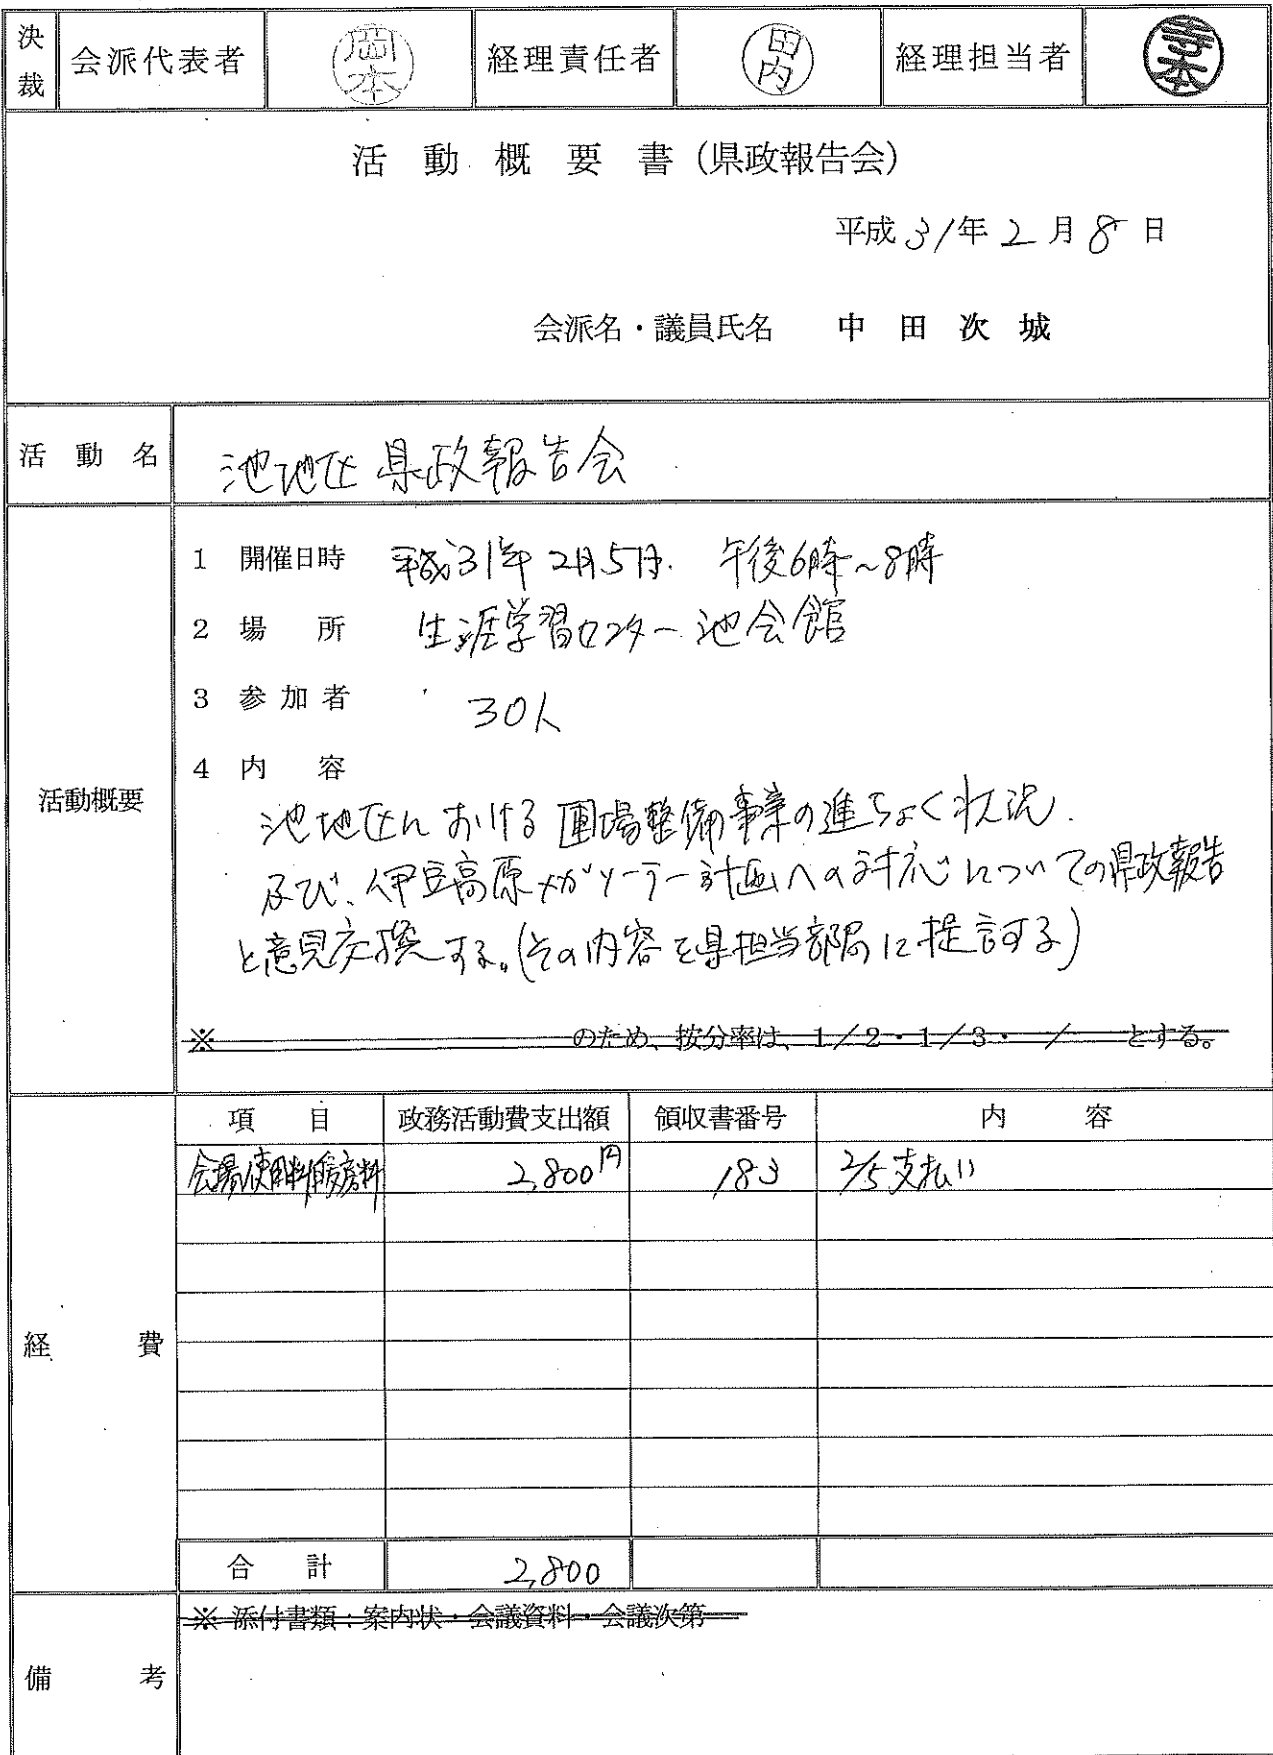 決裁 会派代表者 岡本 経理責任者 田内 経理担当者 寺本
活動概要書（県政報告会）
平成31年2月8日
会派名・議員氏名 中田次城
活動名 池地区県政報告会
活動概要
1 開催日時 平成31年2月5日. 午後6時～8時
2 場所 生涯学習センター池会館
3 参加者 30人
4 内容
池地区における圃場整備事業の進ちょく状況.
及び、伊豆高原メガソーラー計画への対応についての県政報告
と意見交換する。(その内容を県担当部局に提言する)
※ のため、按分率は、1／2・1／3・ ／ とする。
経費
項目 政務活動費支出額 領収書番号 内容
会場使用料暖房料 2,800円 183 2/5支払い
合計 2,800
備考
※ 添付書類：案内状・会議資料・会議次第